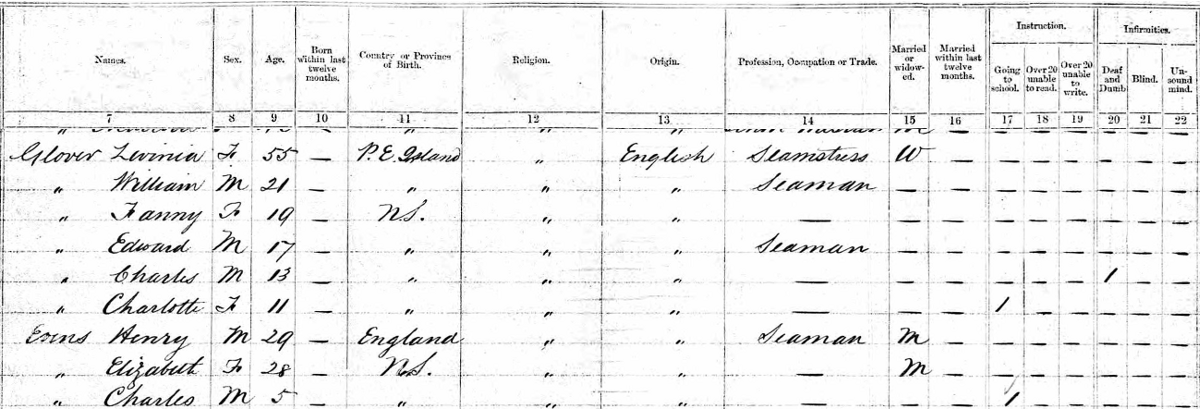 Instruction. Infirmities.
Names. Sex. Age. Born within last twelve months. Country or Province of Birth. Religion. Origin. Profession, Occupation or Trade. Married or widow-ed. Married within last twelve months. Going to school. Over 20 unable to read. Over 20 unable to write. Deaf and Dumb Blind. Un-sound mind.
7 8 9 10 11 12 13 14 15 16 17 18 19 20 21 22
Glover Levinia F 55 — P. E. Island " English Seamstress W — — — — — — —
" William M 21 — " " " Seaman — — — — — — — —
" Fanny F 19 — N.S. " " — — — — — — — — —
" Edward M 17 — " " " Seaman — — — — — — — —
" Charles M 13 — " " " — — — — — — 1 — —
" Charlotte F 11 — " " " — — — 1 — — — — —
Evens Henry M 29 — England " " Seaman M — — — — — — —
" Elizabeth F 28 — N.S. " " — M — — — — — — —
" Charles M 5 — " " " — — — 1 — — — — —